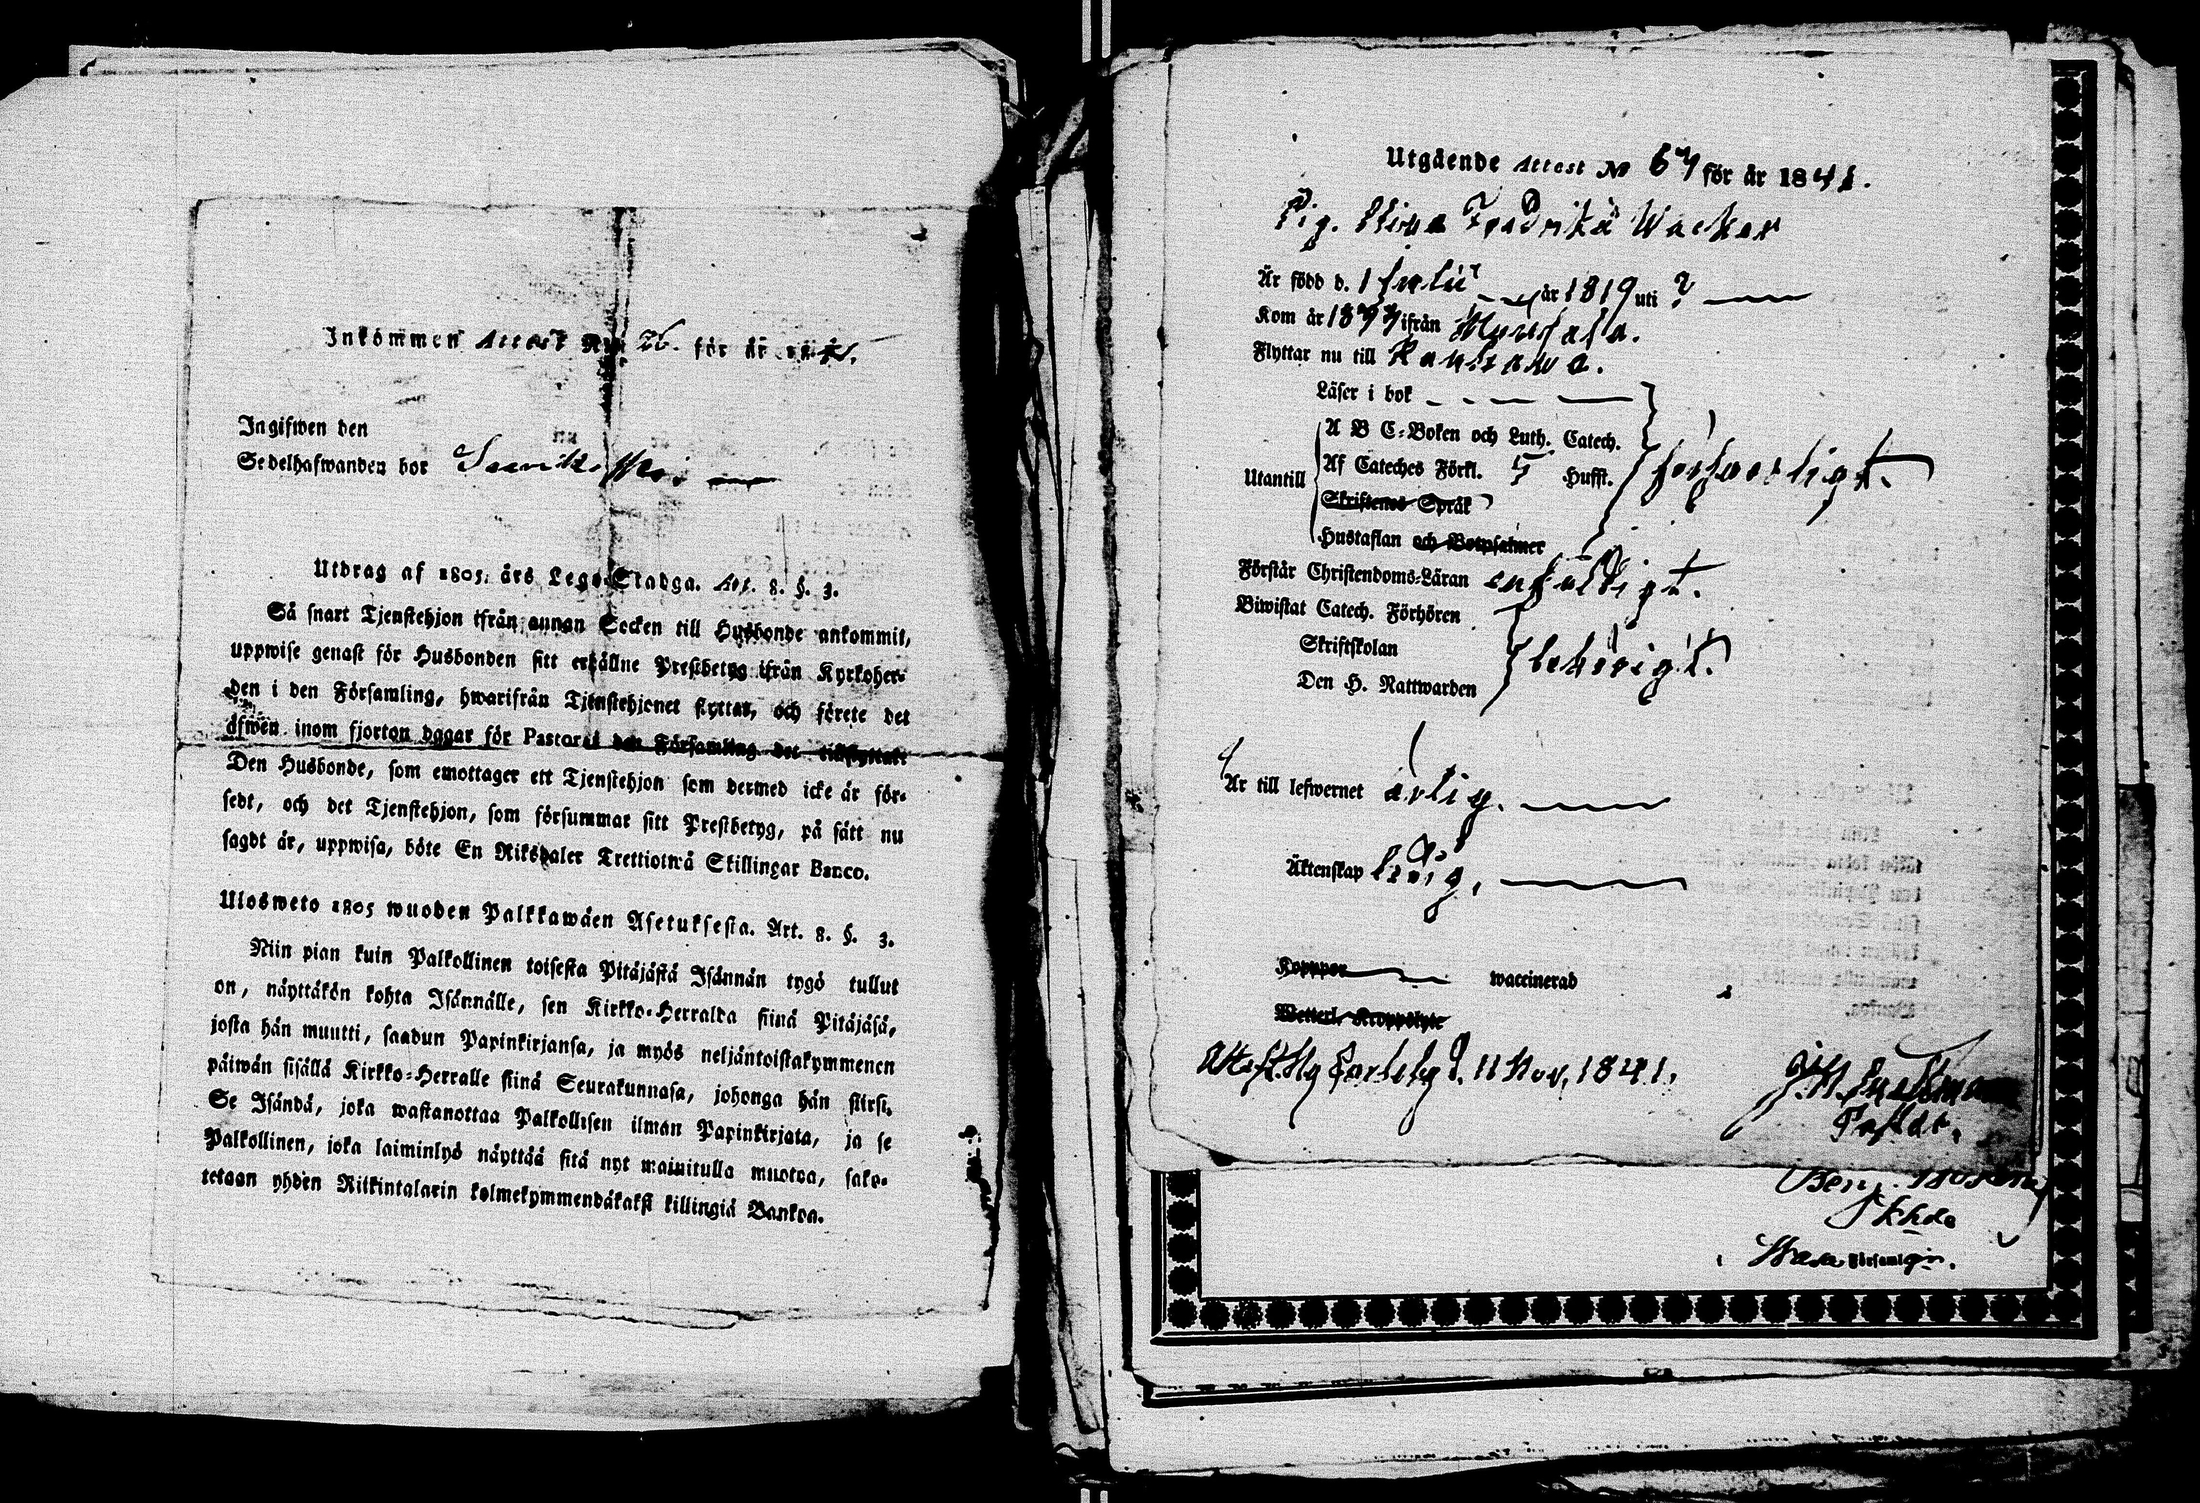 Inkommen Attest N:o 26. för år 1841.
Ingifwen den
Sedelhafwanden bor
Utdrag af 1805. års Lego-Stadga. Art. 8. §. 3.
Så snart Tjenstehjon ifrån annan Socken till Husbonde ankommit,
uppwise genast för Husbonden sitt erhållne Prestbetyg ifrån Kyrkoher-
den i den Församling, hwarifrån Tjenstehjonet flyttat, och förete det
äfwen inom fjorton dagar för Pastor i den Församling det tillflyttat.
Den Husbonde, som emottager ett Tjenstehjon som dermed icke är för-
sedt, och det Tjenstehjon, som försummar sitt Prestbetyg, på sätt nu
sagdt är, uppwisa, böte En Riksdaler Trettiotwå Skillingar Banco.
Ulosweto 1805 wuoden Palkkawäen Asetuksesta. Art. 8. §. 3.
Niin pian kuin Palkollinen toisesta Pitäjästä Isännän tygö tullut
on, näyttäkön kohta Isännälle, sen Kirkko-Herralda siinä Pitäjäsä,
josta hän muutti, saadun Papinkirjansa, ja myös neljäntoistakymmenen
päiwän sisällä Kirkko-Herralle siinä Seurakunnasa, johonga hän siirsi.
Se Isändä, joka wastanottaa Palkollisen ilman Papinkirjata, ja se
Palkollinen, joka laiminlyö näyttää sitä nyt mainitulla muotoa, sako-
tetaan yhden Riikintalarin kolmekymmendäkaksi killingiä Bankoa.
Utgående Attest No 67 för år 1841.
Pig. Stina Fredrika Wacker
Är född d. 1 Julii år 1819 uti ?
Kom år 1837 ifrån Mustasa.
Flyttar nu till
Läser i bok
A B C-Boken och Luth. Catech.
Utantill Af Cateches Förkl. 5 Hufst. försvarligt.
Skriftenes Språk
Hustaflan och Botpsalmer
Förstår Christendoms-Läran enfaldigt.
Biwistat Catech. Förhören
Skriftskolan behörigt.
Den H. Nattwarden
Är till lefwernet ärlig.
Äktenskap ledig.
Koppor waccinerad
Wetterl. Kroppslyte
Attest. Ny Carleby d. 11 Nov. 1841.
Past. Adt.
Wasa Församlgn.